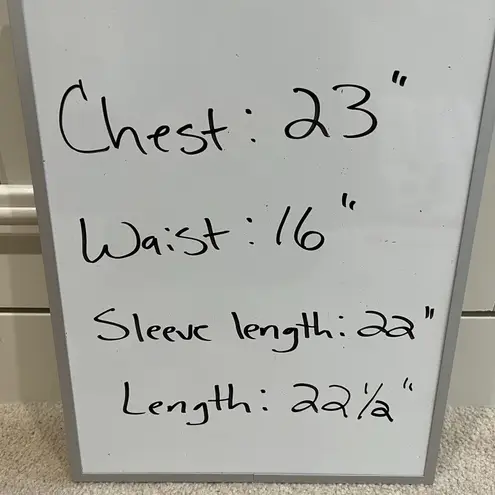 Chest: 23"
Waist: 16"
Sleeve length: 22"
Length: 22 1/2"